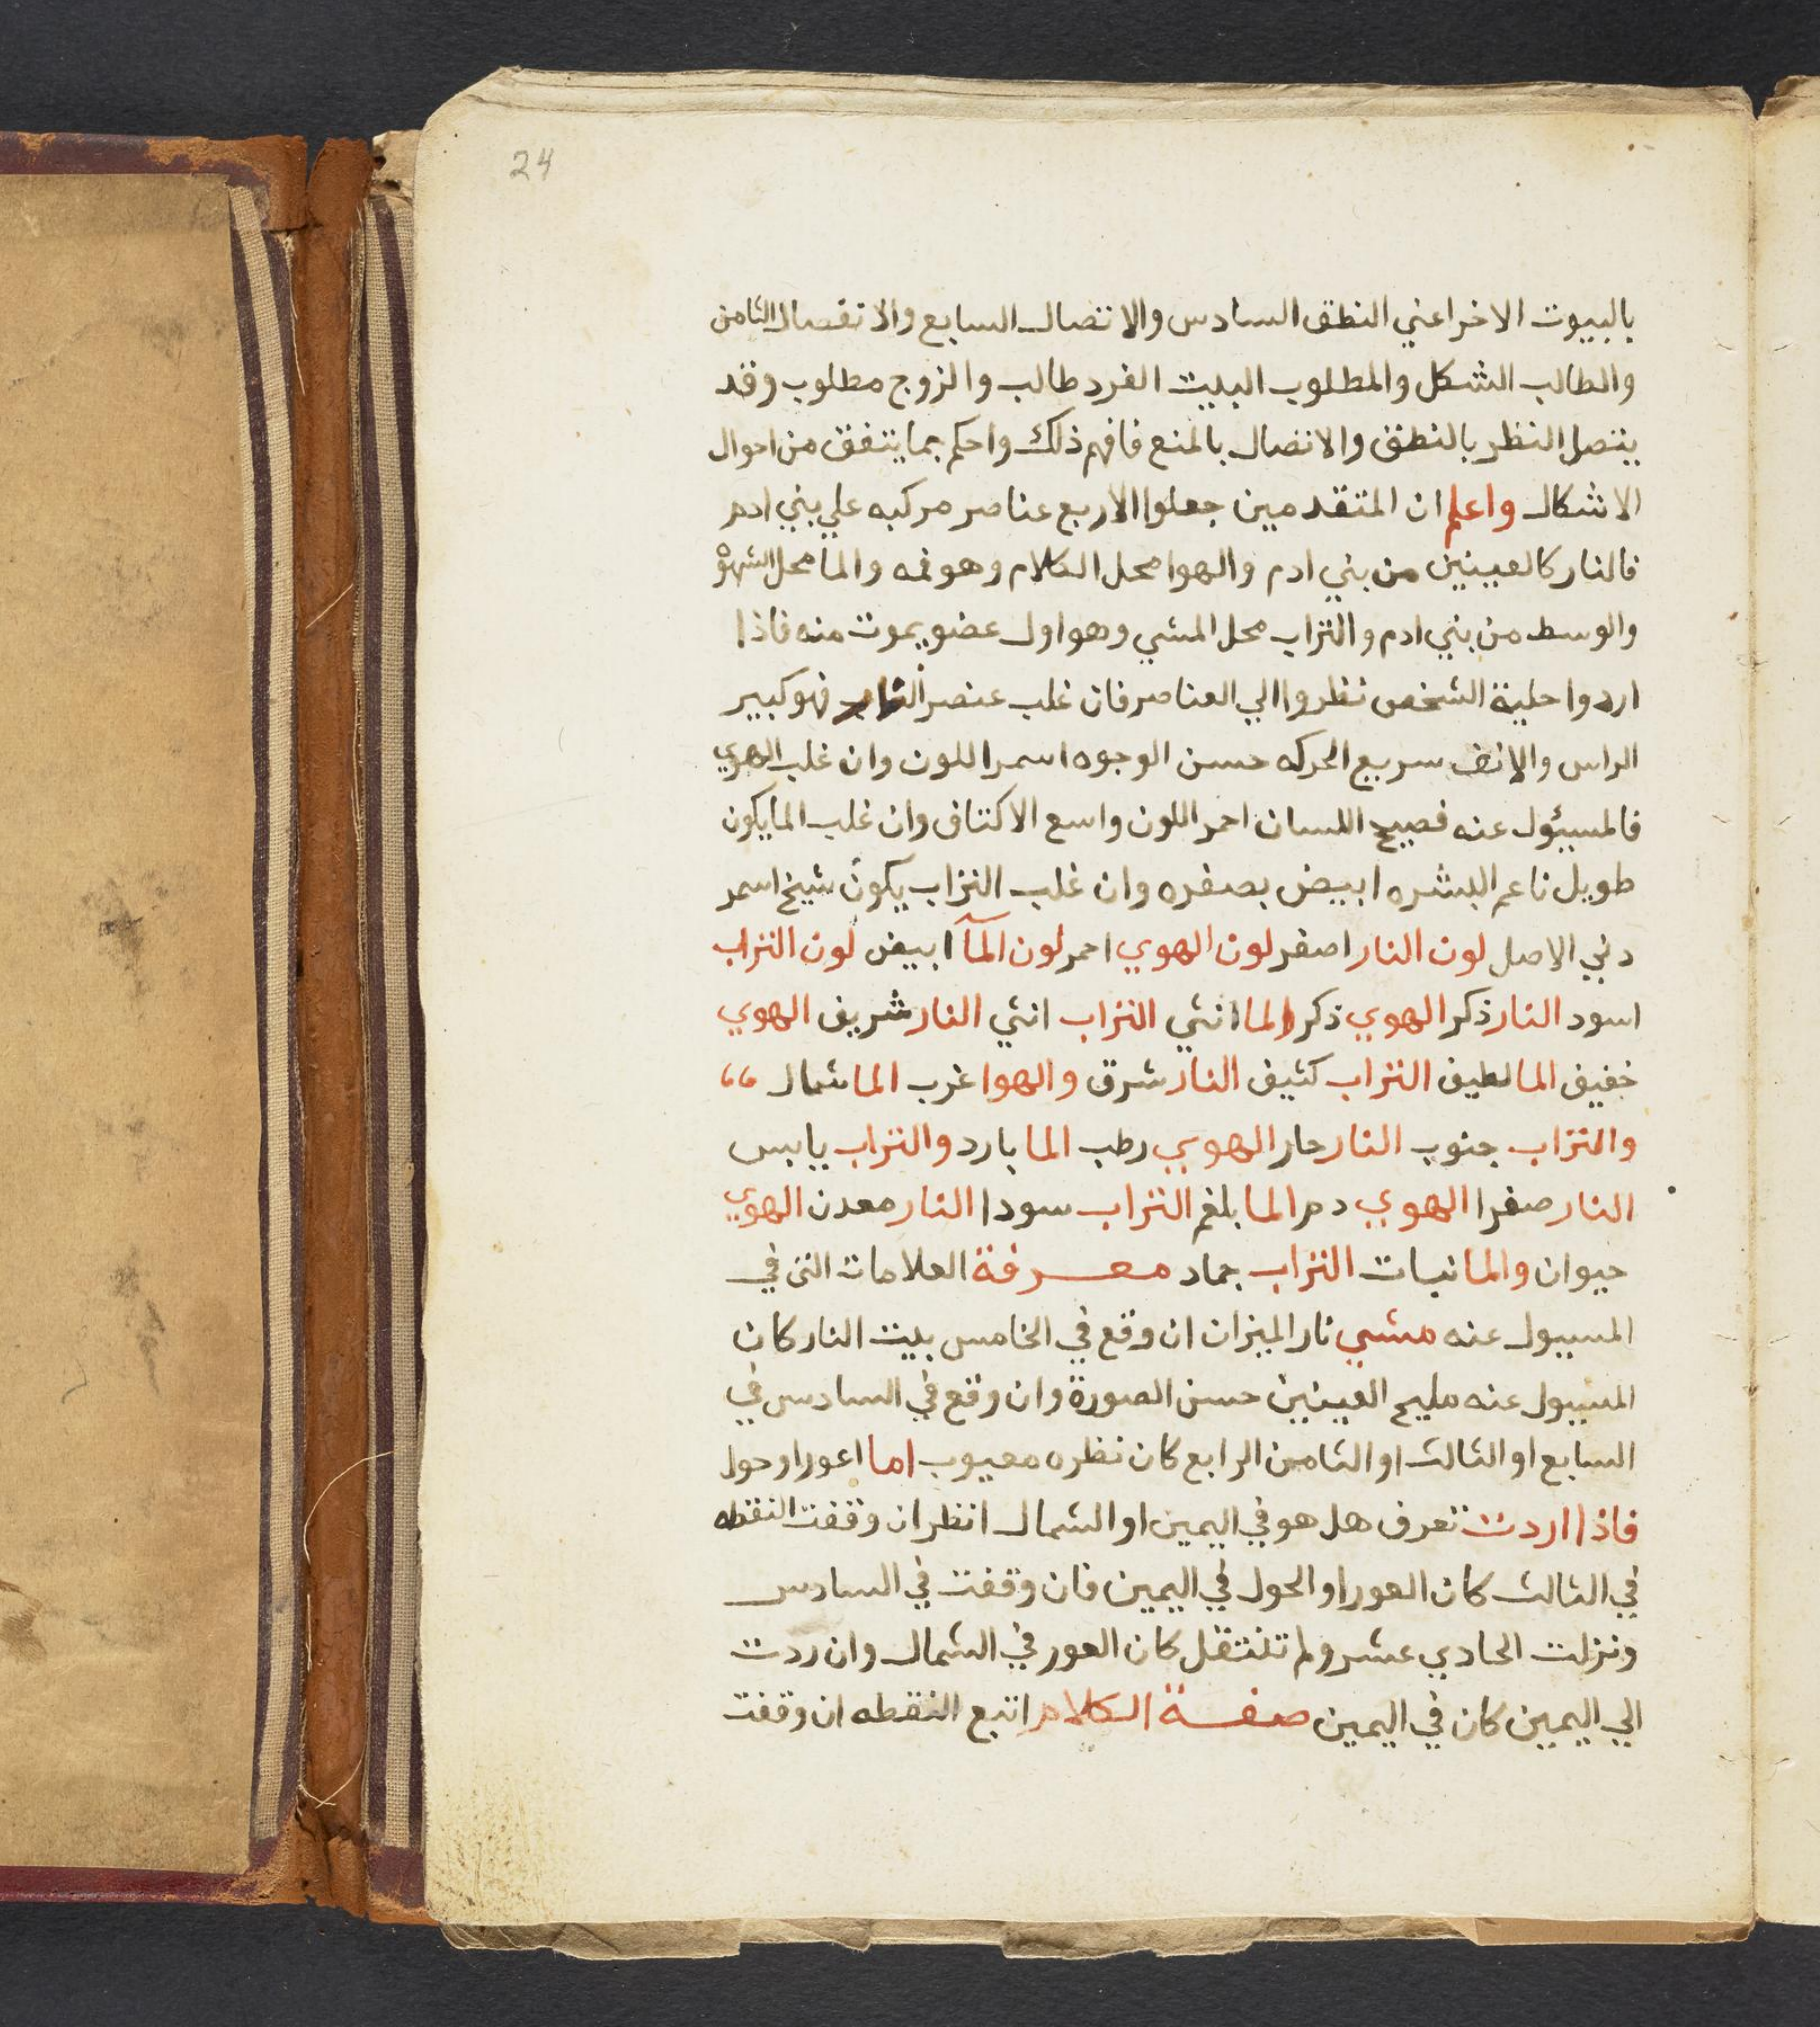 24
بالبيوت الاخر اعني النطق السادس والاتصال السابع والانفصال الثامن
والطالب الشكل والمطلوب البيت الفرد طالب والزوج مطلوب وقد
يتصل النظر بالنطق والاتصال بالمنع فافهم ذلك واحكم بما يتفق من احوال
الاشكال واعلم ان المتقدمين جعلوا الاربع عناصر مركبه علي بني ادم
فالنار كالعينين من بني ادم والهوا محل الكلام وهو فمه والما محل الشهوة
والوسط من بني ادم والتراب محل المشي وهو اول عضو يموت منه فاذا
اردوا حلية الشخص نظروا الي العناصر فان غلب عنصر النار فهو كبير
الراس والانف سريع الحركه حسن الوجوه اسمر اللون وان غلب الهوي
فالمسيؤل عنه فصيح اللسان احمر اللون واسع الاكتاف وان غلب الما يكون
طويل ناعم البشره ابيض بصفره وان غلب التراب يكون شيخ اسمر
دني الاصل لون النار اصفر لون الهوي احمر لون المآ ابيض لون التراب
اسود النار ذكر الهوي ذكر الما انثي التراب انثي النار شريف الهوي
خفيف الما لطيف التراب كثيف النار شرق والهوا غرب الما شمال
والتراب جنوب النار حار الهوي رطب الما بارد والتراب يابس
النار صفرا الهوي دم الما بلغم التراب سودا النار معدن الهوي
حيوان والما نبات التراب جماد معرفة العلامات التي في
المسيول عنه مشي نار الميزان ان وقع في الخامس بيت النار كان
المسيول عنه مليح العينين حسن الصورة وان وقع في السادس في
السابع او الثالث او الثامن الرابع كان نظره معيوب اما اعور او حول
فاذا اردت تعرف هل هو في اليمين او الشمال انظر ان وقفت النقطه
في الثالث كان العور او الحول في اليمين فان وقفت في السادس
ونزلت الحادي عشر ولم تنتقل كان العور في الشمال وان ردت
الي اليمين كان في اليمين صفة الكلام اتبع النقطه ان وقفت